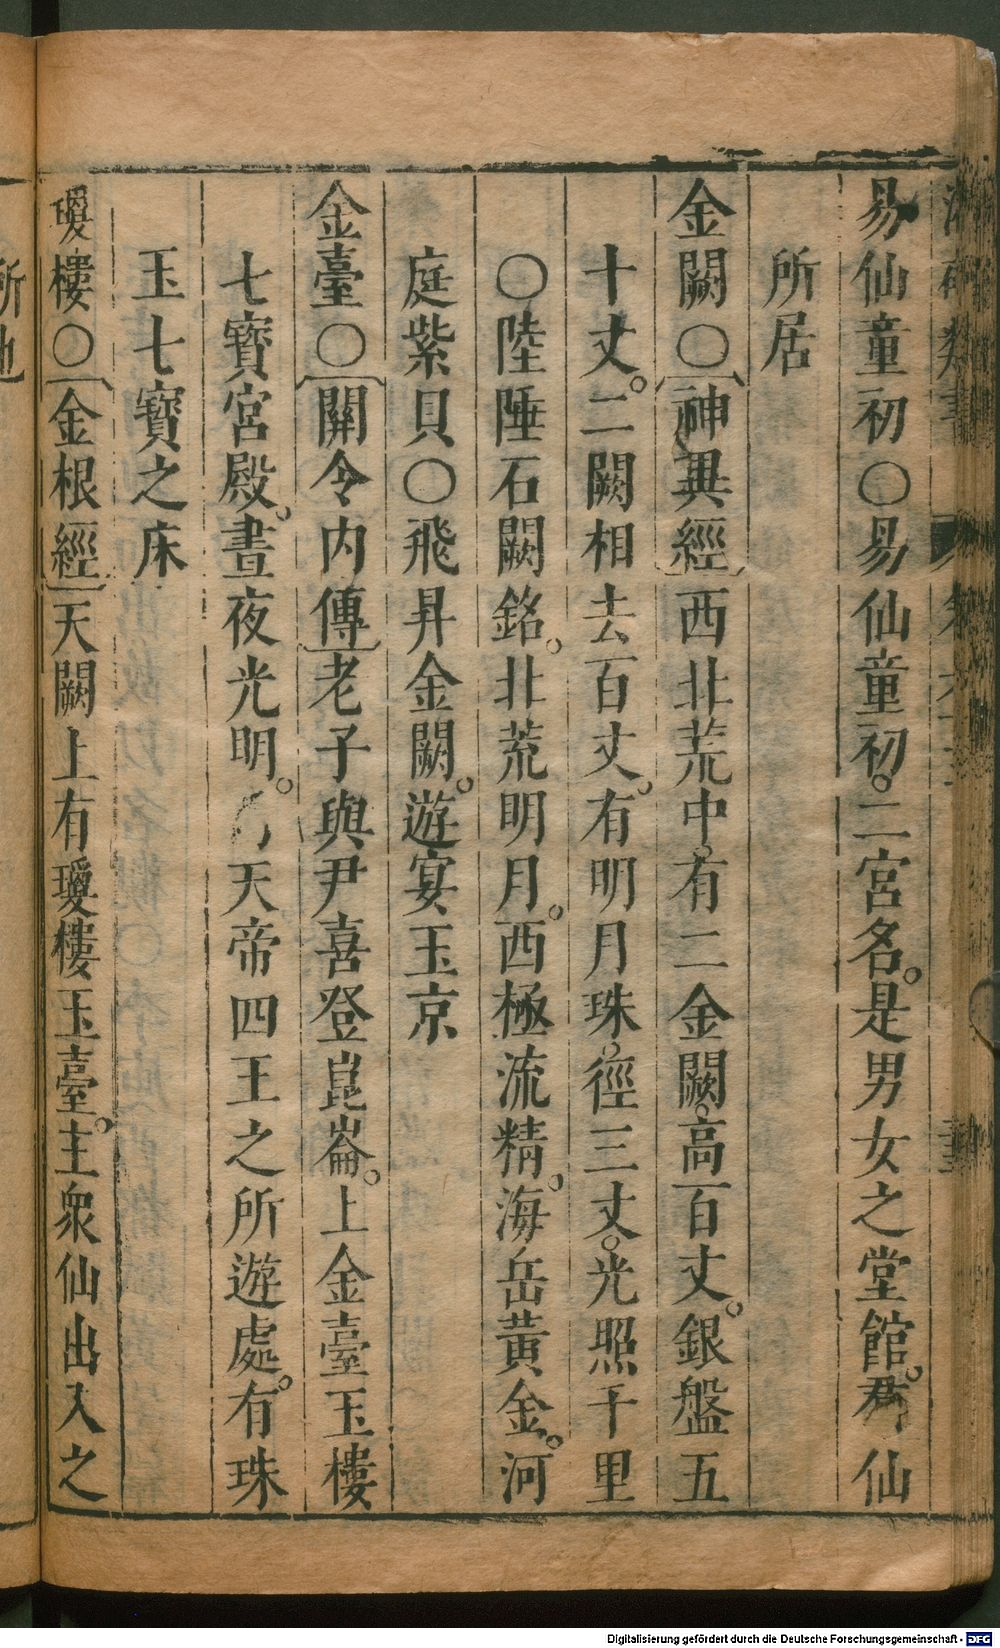 易仙童初○易仙童初。二宮名。是男女之堂館。仙
所居
金闕○神異經西北荒中。有二金闕。高百丈。銀盤五
十丈。二闕相去百丈。有明月珠。徑三丈。光照千里
○陸陲石闕銘。北荒明月。西極流精。海岳黃金。河
庭紫貝○飛昇金闕。遊宴玉京
金臺○關令内傳老子與尹喜登崑崙。上金臺玉樓
七寶宮殿。晝夜光明。乃天帝四王之所遊處。有珠
玉七寶之床
璦樓○金根經天闕上有璦樓玉臺。主衆仙出入之
所也
Digitalisierung gefördert durch die Deutsche Forschungsgemeinschaft - DFG